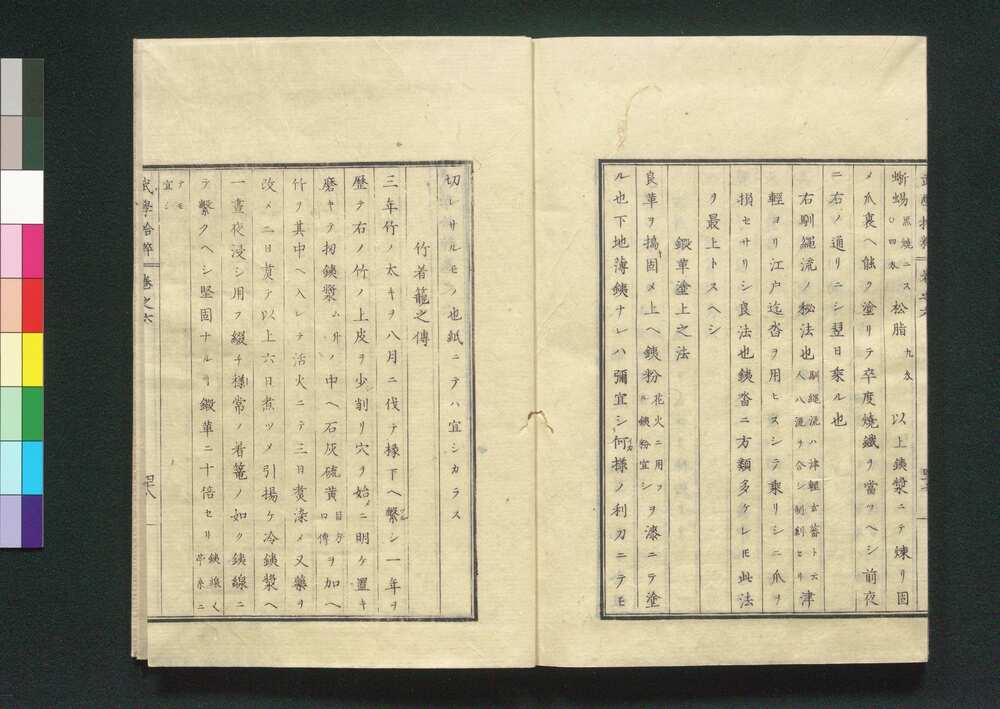 蜥蜴 黒焼ニス 〇四匁 松脂 九匁 以上銕漿ニテ煉リ固
メ爪裏ヘ能ク塗リテ卒度焼鐵ヲ當ツヘシ前夜
ニ右ノ通リニシ翌日乗ル也
右馴縄流ノ秘法也 馴縄流ハ津軽玄蕃ト云 人八流ヲ合シ制剏セリ 津
軽ヨリ江戸迄沓ヲ用ヒスシテ乗リシニ爪ヲ
損セサリシ良法也銕沓ニ方類多ケレ𪜈此法
ヲ最上トスヘシ
鍛革塗上之法
良革ヲ搗固メ上ヘ銕粉 花火ニ用フ ル銕粉宜シ ヲ漆ニテ塗
ル也下地薄銕ナレハ彌宜シ何様ノ利刀ニテモ
切レサルモノ也紙ニテハ宜シカラス
竹着籠之傳
三年竹ノ太キヲ八月ニ伐テ椽下ヘ繋シ一年ヲ
歴テ右ノ竹ノ上皮ヲ少削リ穴ヲ始メニ明ケ置キ
磨キテ扨銕漿ム升ノ中ヘ石灰硫黄 目方 口傳 ヲ加ヘ
竹ヲ其中ヘ入レテ活火ニテ三日煑染メ又藥ヲ
改メ二日煑テ以上六日煮ツメ引揚ケ冷銕漿ヘ
一晝夜浸シ用フ綴チ様常ノ着篭ノ如ク銕線ニ
テ繋クヘシ堅固ナルヿ鍛革ニ十倍セリ 銕線ハ 苧糸ニ
テモ 宜シ
武學拾粋 巻之六 四十八